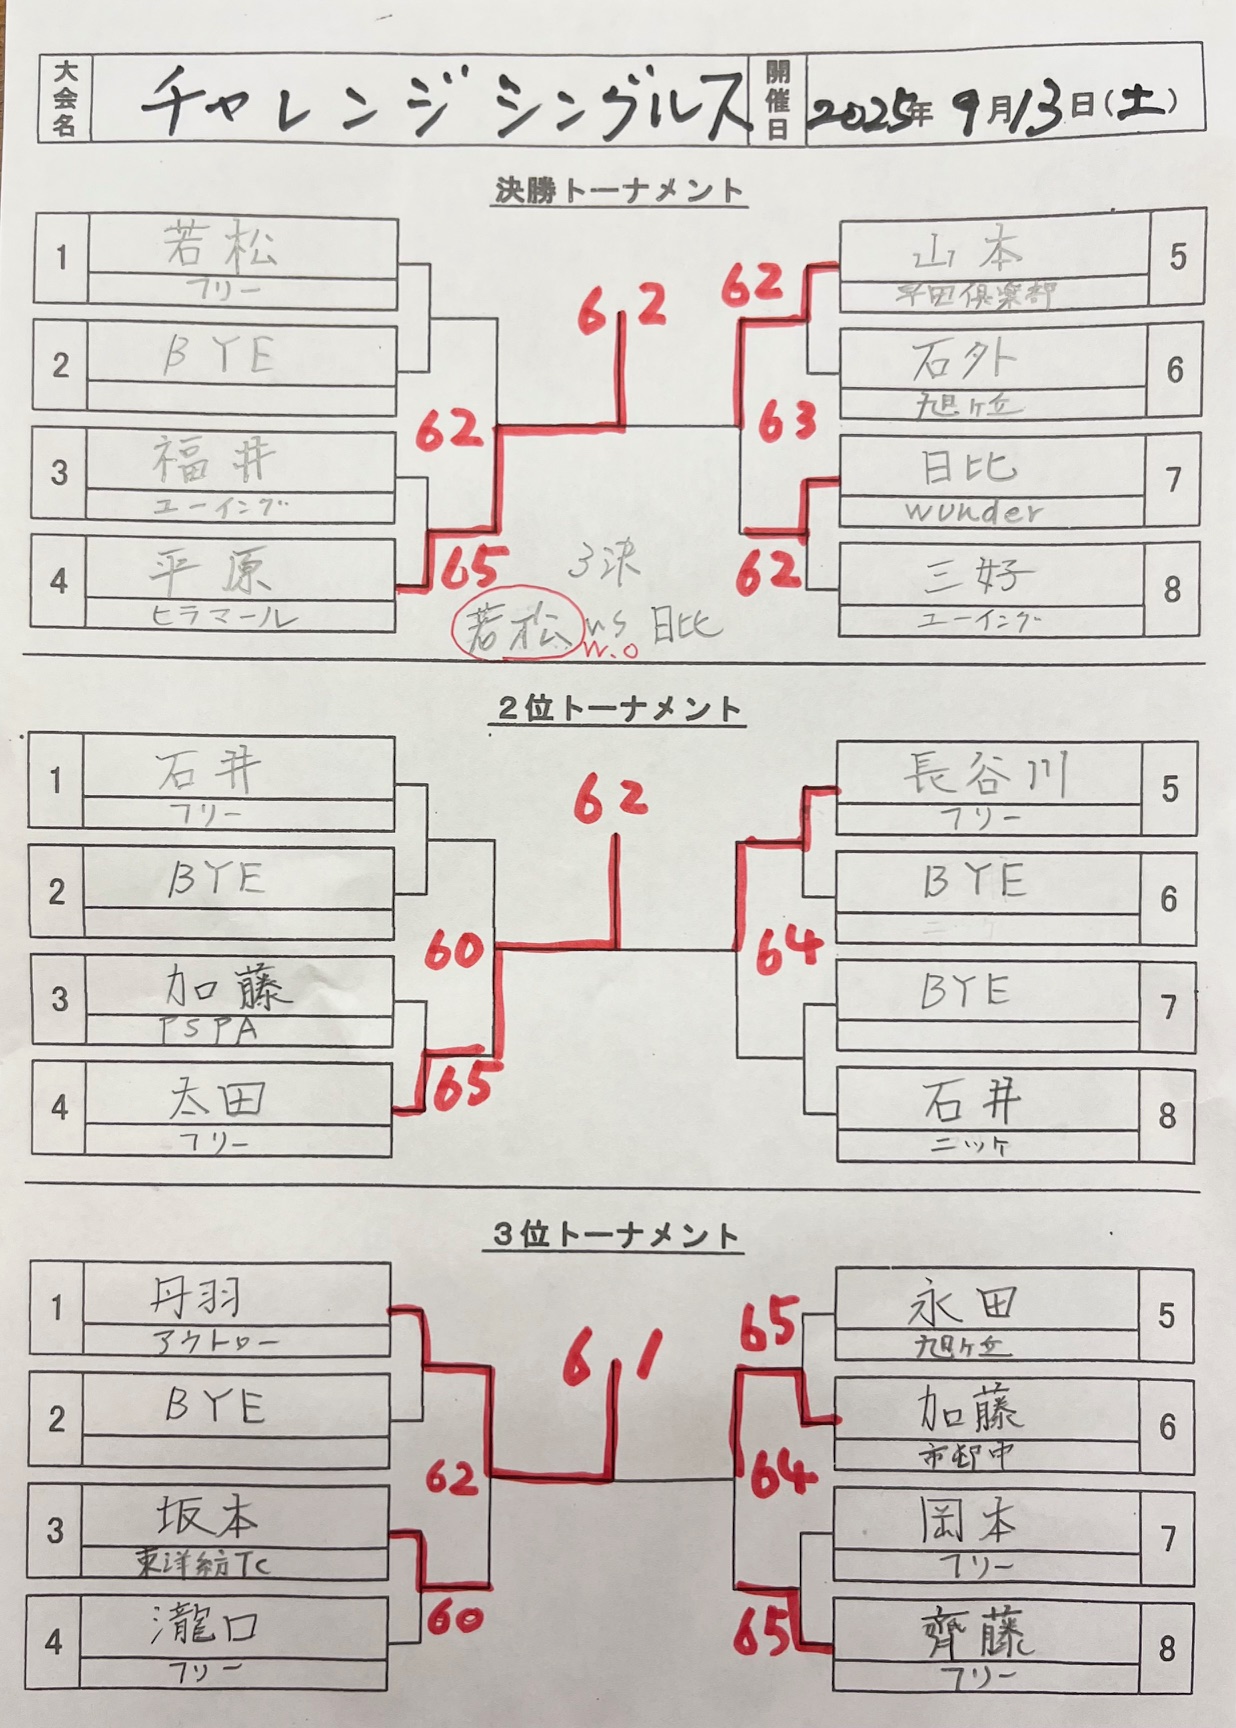 大会名 チャレンジシングルス 開催日 2025年 9月13日(土)
決勝トーナメント
1 若松
フリー
2 BYE
3 福井
ユーイング
4 平原
ヒラマール
62
65
62
62
63
62
山本 5
早田倶楽部
石外 6
旭ヶ丘
日比 7
wunder
三好 8
ユーイング
3決
若松 vs 日比
W.O
2位トーナメント
1 石井
フリー
2 BYE
3 加藤
PSPA
4 太田
フリー
60
65
62
64
長谷川 5
フリー
BYE 6
BYE 7
石井 8
ニッケ
3位トーナメント
1 丹羽
アウトロー
2 BYE
3 坂本
東洋紡TC
4 瀧口
フリー
62
60
61
65
64
65
永田 5
旭ヶ丘
加藤 6
岡本 7
フリー
齊藤 8
フリー